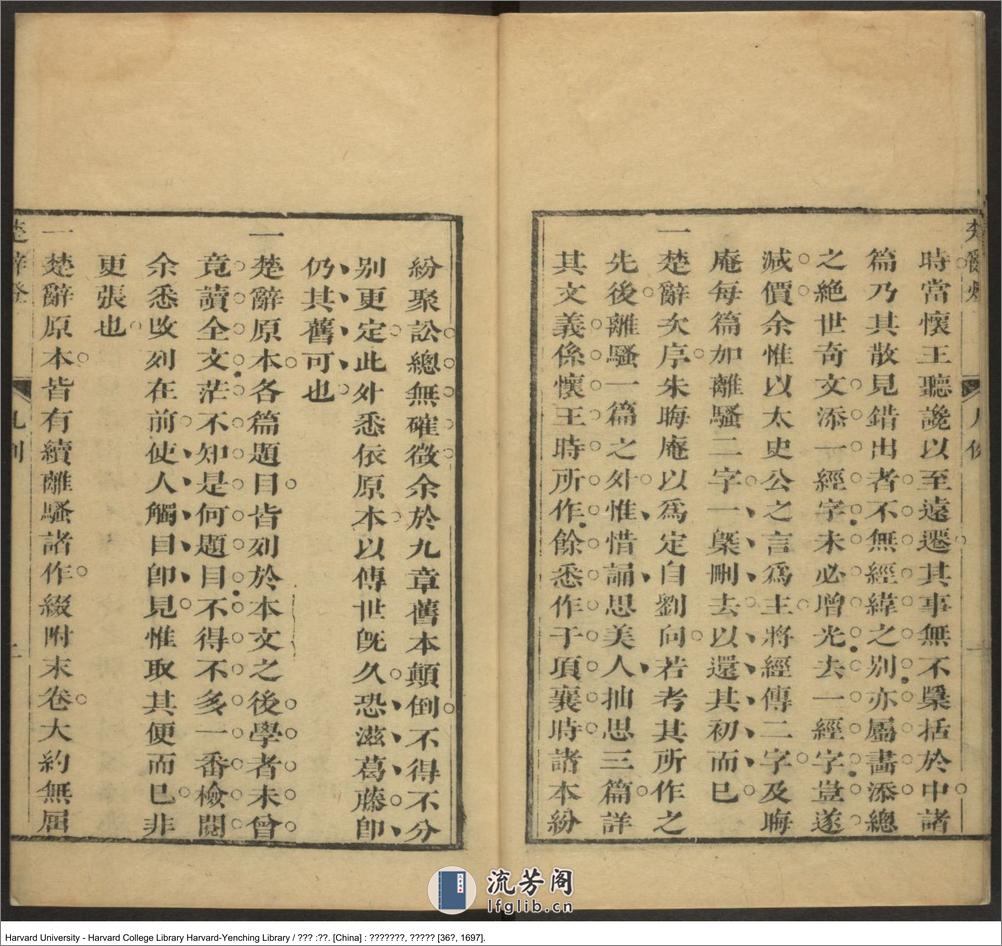 時當懷王聽讒以至遠遷其事無不櫽括於中諸
篇乃其散見錯出者不無經緯之別亦屬畵添總
之絶世奇文添一經字未必增光去一經字豈遂
減價余惟以太史公之言爲主將經傳二字及晦
庵每篇加離騷二字一槩刪去以還其初而已
一楚辭次序朱晦庵以爲定自劉向若考其所作之
先後離騷一篇之外惟惜誦思美人抽思三篇詳
其文義係懷王時所作餘悉作于項襄時諸本紛
紛聚訟總無確徵余於九章舊本顛倒不得不分
別更定此外悉依原本以傳世旣久恐滋葛藤卽
仍其舊可也
一楚辭原本各篇題目皆列於本文之後學者未曾
竟讀全文茫不知是何題目不得不多一番檢閱
余悉改列在前使人觸目卽見惟取其便而已非
更張也
一楚辭原本皆有續離騷諸作綴附末卷大約無屈
流芳阁
lfglib.cn
Harvard University - Harvard College Library Harvard-Yenching Library / ??? :??. [China] : ???????, ????? [36?, 1697].